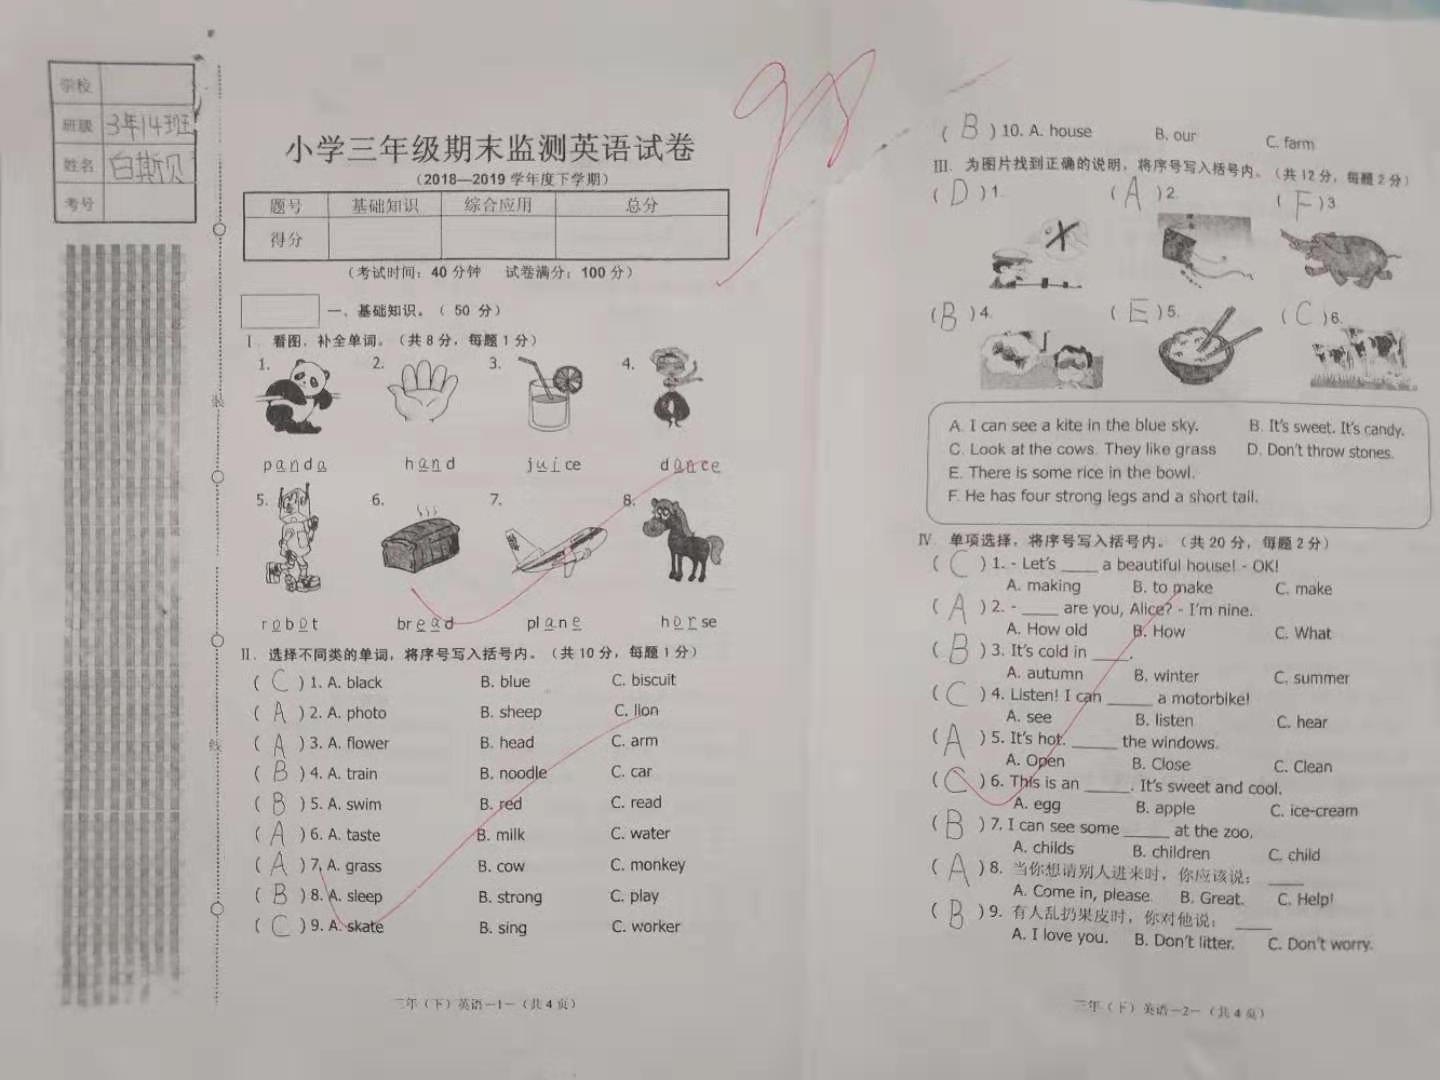 学校
班级 3年14班
姓名 白斯贝
考号
装
线
98
小学三年级期末监测英语试卷
（2018—2019 学年度下学期）
题号 基础知识 综合应用 总分
得分
（考试时间：40 分钟 试卷满分：100 分）
一、基础知识。（ 50 分）
Ⅰ. 看图，补全单词。（共 8 分，每题 1 分）
1. 2. 3. 4.
panda hand juice dance
5. 6. 7. 8.
robot bread plane horse
Ⅱ. 选择不同类的单词，将序号写入括号内。（共 10 分，每题 1 分）
( C ) 1. A. black B. blue C. biscuit
( A ) 2. A. photo B. sheep C. lion
( A ) 3. A. flower B. head C. arm
( B ) 4. A. train B. noodle C. car
( B ) 5. A. swim B. red C. read
( A ) 6. A. taste B. milk C. water
( A ) 7. A. grass B. cow C. monkey
( B ) 8. A. sleep B. strong C. play
( C ) 9. A. skate B. sing C. worker
三年（下）英语－1－（共 4 页）
( B ) 10. A. house B. our C. farm
Ⅲ. 为图片找到正确的说明，将序号写入括号内。（共 12 分，每题 2 分）
( D ) 1. ( A ) 2. ( F ) 3.
( B ) 4. ( E ) 5. ( C ) 6.
A. I can see a kite in the blue sky. B. It's sweet. It's candy.
C. Look at the cows. They like grass D. Don't throw stones.
E. There is some rice in the bowl.
F. He has four strong legs and a short tail.
Ⅳ. 单项选择，将序号写入括号内。（共 20 分，每题 2 分）
( C ) 1. - Let's ____ a beautiful house! - OK!
A. making B. to make C. make
( A ) 2. - ____ are you, Alice? - I'm nine.
A. How old B. How C. What
( B ) 3. It's cold in ____.
A. autumn B. winter C. summer
( C ) 4. Listen! I can _____ a motorbike!
A. see B. listen C. hear
( A ) 5. It's hot. _____ the windows.
A. Open B. Close C. Clean
( C ) 6. This is an _____. It's sweet and cool.
A. egg B. apple C. ice-cream
( B ) 7. I can see some _____ at the zoo.
A. childs B. children C. child
( A ) 8. 当你想请别人进来时，你应该说： ____
A. Come in, please. B. Great. C. Help!
( B ) 9. 有人乱扔果皮时，你对他说： ____
A. I love you. B. Don't litter. C. Don't worry.
三年（下）英语－2－（共 4 页）